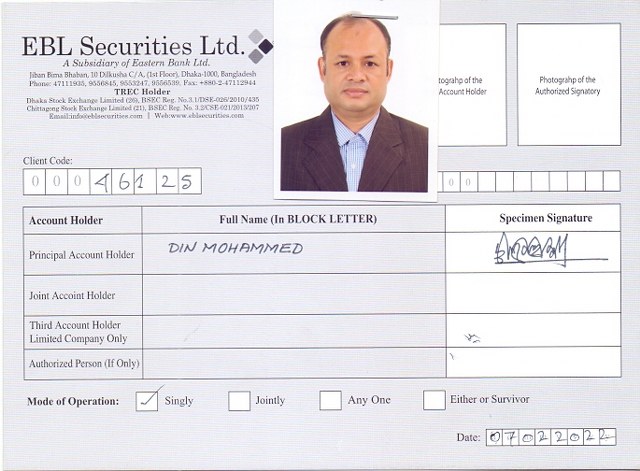 EBL Securities Ltd.
A Subsidiary of Eastern Bank Ltd.
Jiban Bima Bhaban, 10 Dilkusha C/A, (1st Floor), Dhaka-1000, Bangladesh
Phone: 47111935, 9556845, 9553247, 9556539. Fax: +880-2-47112944
TREC Holder
Dhaka Stock Exchange Limited (26), BSEC Reg. No.3.1/DSE-026/2010/435
Chittagong Stock Exchange Limited (21), BSEC Reg. No. 3.2/CSE-021/2013/207
Email:info@eblsecurities.com | Web:www.eblsecurities.com
tograhp of the
Account Holder
Photograhp of the
Authorized Signatory
Client Code:
0 0 0 4 6 1 2 5
0 0
Account Holder Full Name (In BLOCK LETTER) Specimen Signature
Principal Account Holder DIN MOHAMMED
Joint Accoint Holder
Third Account Holder
Limited Company Only
Authorized Person (If Only)
Mode of Operation: Singly Jointly Any One Either or Survivor
Date: 0 7 0 2 2 0 2 2